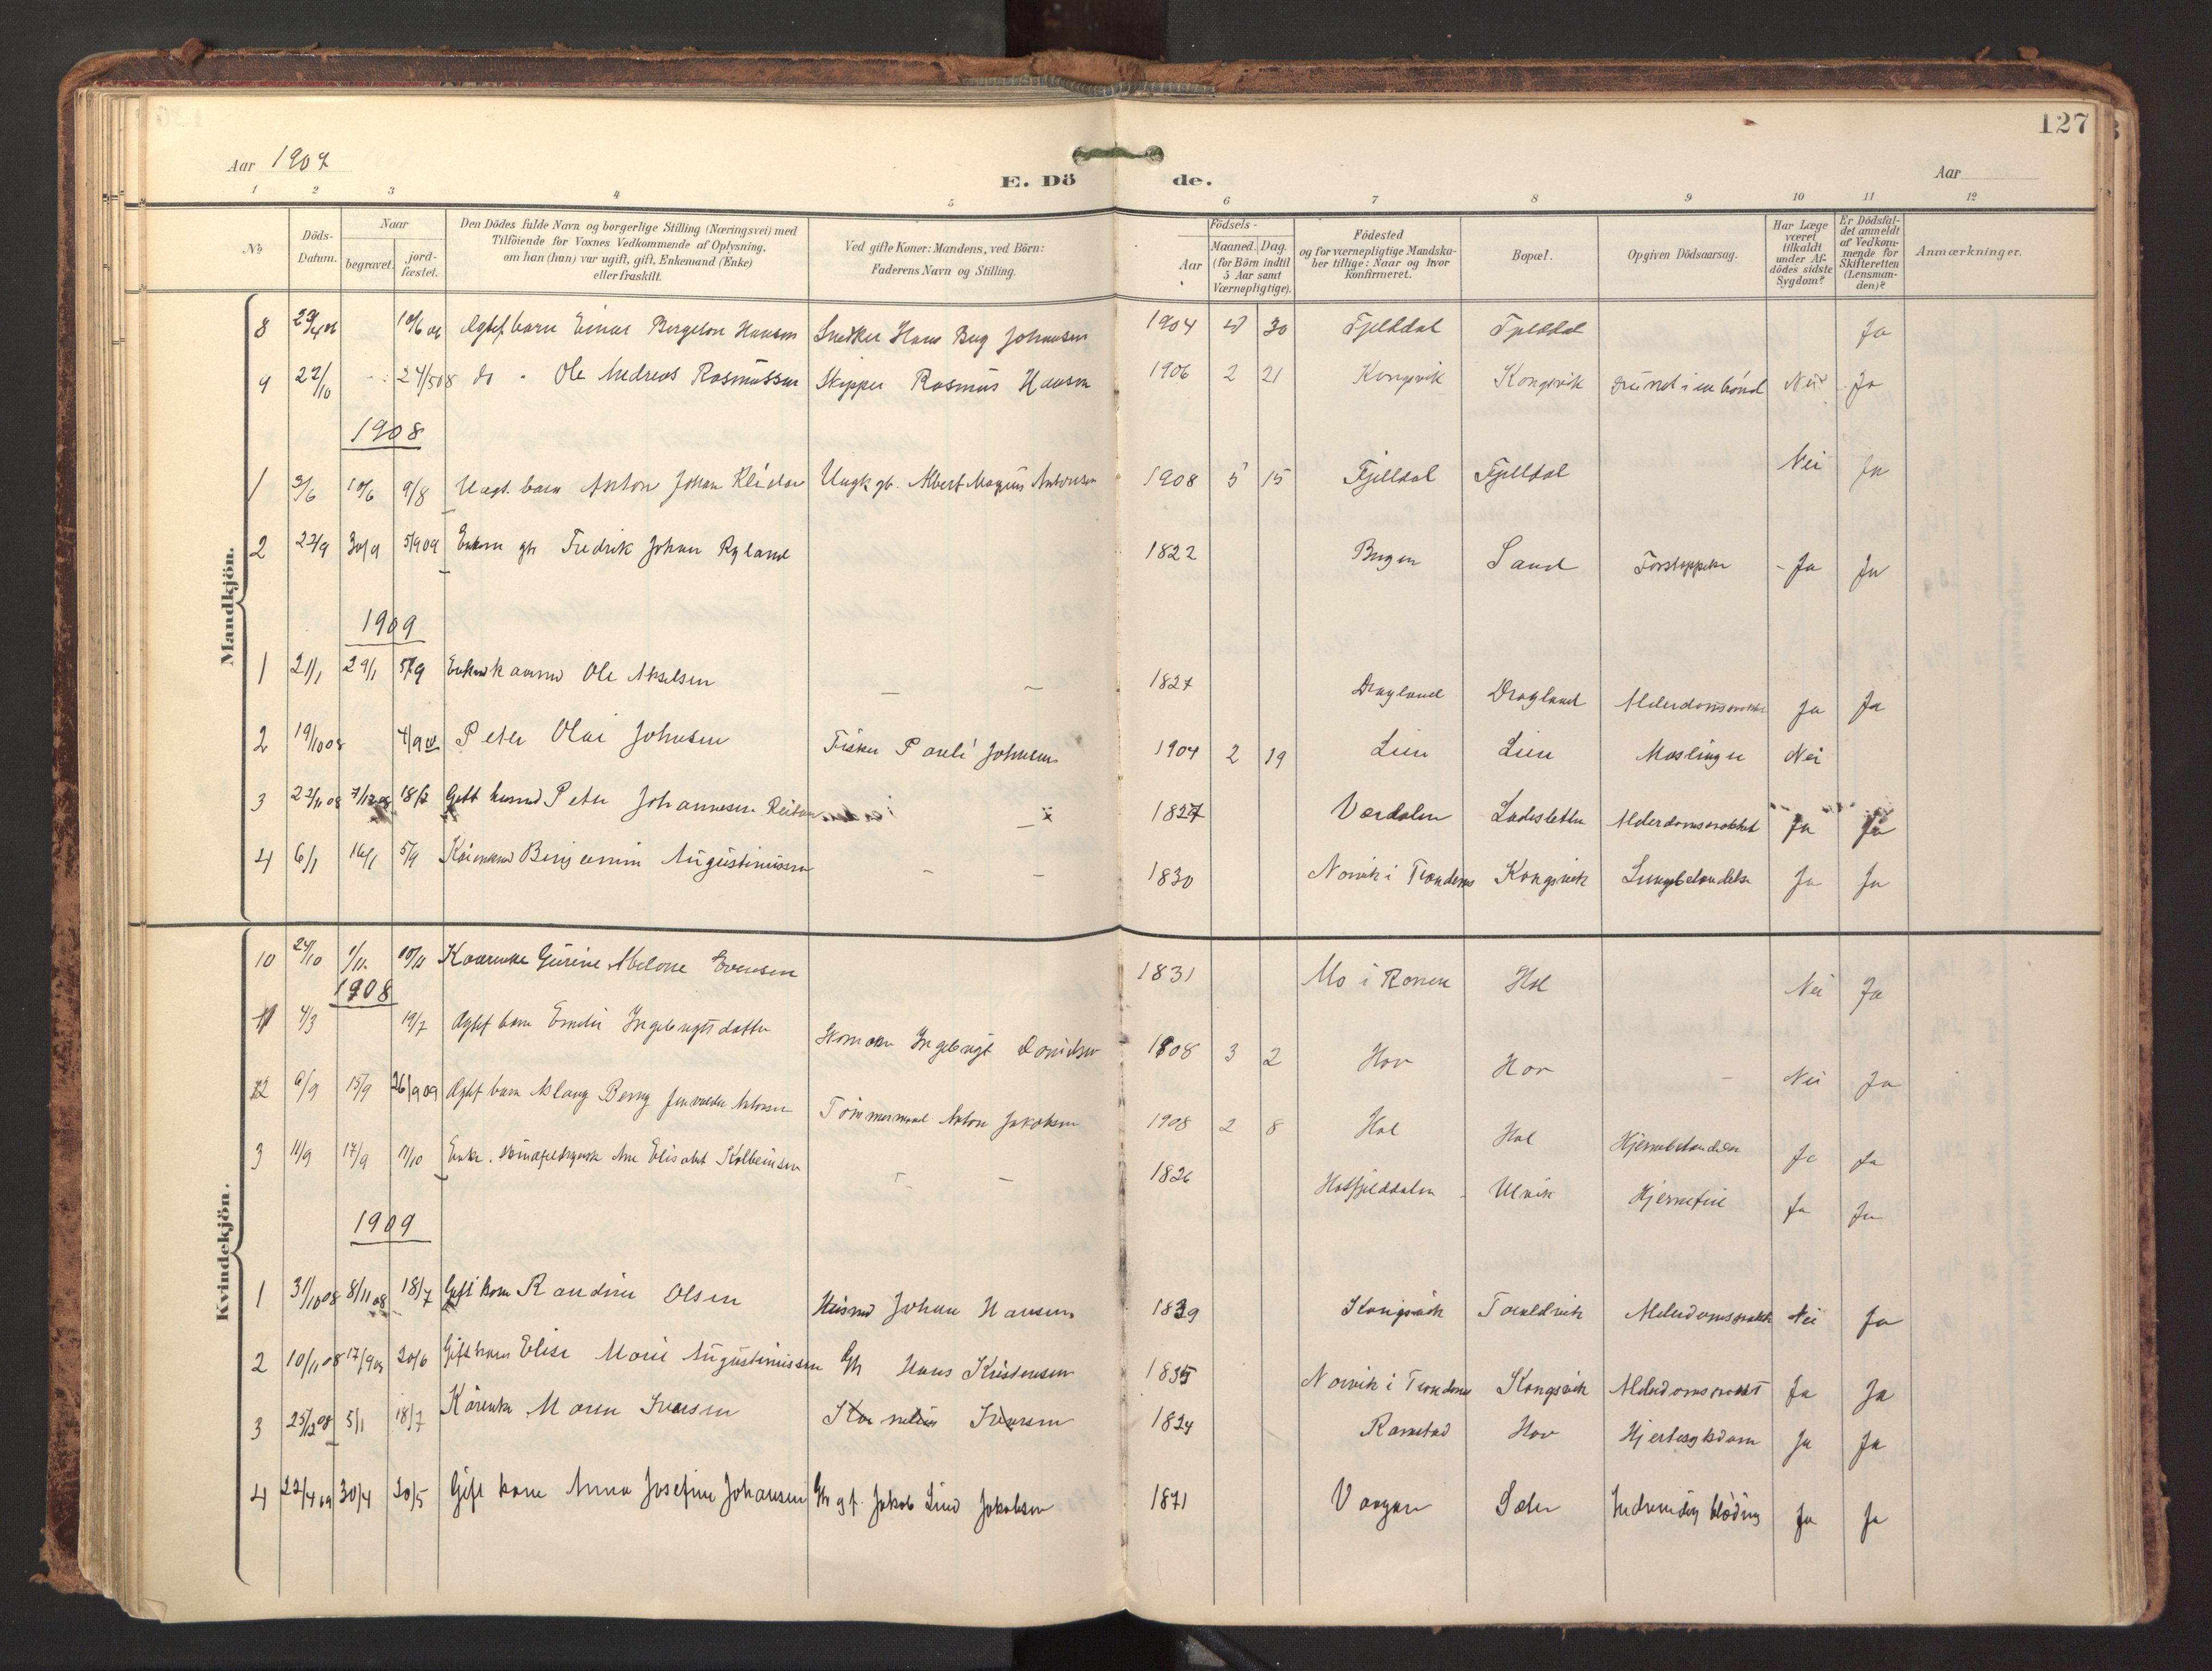 127
Aar 1907
E. Dö de.
Aar
1 2 3 4 5 6 7 8 9 10 11 12
No.
Döds-Datum.
Naar
begravet.
jord-fæstet.
Den Dödes fulde Navn og borgerlige Stilling (Næringsvei) med
Tilföiende for Voxnes Vedkommende af Oplysning,
om han (hun) var ugift, gift, Enkemand (Enke)
eller fraskilt.
Ved gifte Koner: Mandens, ved Börn:
Faderens Navn og Stilling.
Födsels-
Aar
Maaned. Dag.
(for Börn indtil
5 Aar samt
Værnepligtige).
Födested
og for værnepligtige Mandska-
ber tillige: Naar og hvor
konfirmeret.
Bopæl.
Opgiven Dödsaarsag.
Har Læge
været
tilkaldt
under Af-
dödes sidste
Sygdom?
Er Dödsfal-
det anmeldt
af Vedkom-
mende for
Skifteretten
(Lensman-
den)?
Anmærkninger.
Mandkjön.
8 Ægtef barn Einar Bergeton Hansen Snedker Hans Berg Johansen 1904 30 Fjelddal Fjelddal Ja
9 22/10 24/5 08 do - Ole Andreas Rasmussen Skipper Rasmus Hansen 1906 2 21 Kongsvik Kongsvik Nei Ja
1908
1 3/6 10/6 9/8 Uægt. barn Anton Johan Ungk gb. Albert Magnus Antonsen 1908 5 15 Fjelldal Fjelldal Nei Ja
2 22/9 30/9 5/9 09 Enkem gb Fredrik Johan Ryland 1822 Bergen Sand Forstoppelse - Ja Ja
1909
1 21/1 29/1 5/9 Ole Akselsen — — 1827 Dragland Dragland Ja Ja
2 19/10 08 Peter Olai Johnsen Fisker Pauli Johnsen 1904 2 19 Lien Lien Mæslinger Nei
3 22/11 08 7/12 08 18/7 Gift husmd Peter Johannesen 1827 Værdalen Ladesletten Alderdomssvakhet Ja Ja
4 6/1 16/1 5/9 Benjamin Augustinussen - - 1830 Norvik i Trondenes Kongsvik Lungebetændelse Ja Ja
Kvindekjön.
10 24/10 1/11 10/11 Gurine Abelone Evensen 1831 Mo i Ranen Hol Nei Ja
1908
1 4/3 19/7 Ægtef barn Emelie Ingebrigtsdatter Skomaker Ingebrigt Davidsen 1908 3 2 Hov Hov - Nei Ja
2 6/9 15/9 26/9 09 Ægtef barn Aslaug Berny Tömmermand Anton Jakobsen 1908 2 8 Hol Hol Hjernebetændelse Ja Ja
3 11/9 17/9 11/10 Enke. Ane Elisabet Kolbeinsen - - 1826 Hatfjelddalen Ulvik Ja Ja
1909
1 31/10 08 8/11 08 18/7 Gift kone Randine Olsen Husmd Johan Hansen 1839 Kongsvik Taraldvik Alderdomssvakh Nei Ja
2 10/11 08 20/6 Gift kone Elise Marie Augustinussen Gb Hans Kristensen 1835 Norvik i Trondenes Kongsvik Alderdomssvakht Ja Ja
3 25/12 08 5/1 18/7 Maren Iversen Iversen 1824 Ramstad Hov Hjertesykdom Ja Ja
4 22/4 09 30/4 20/5 Gift kone Anna Josefine Johansen Jakob Lind Jakobsen 1871 Vaagan Sæter Indvendig blödning Ja Ja